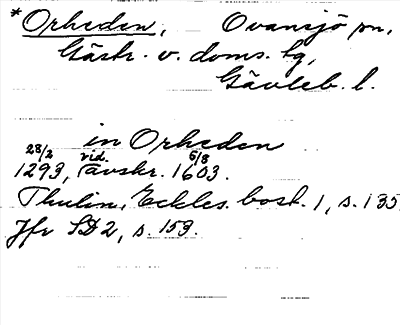 *Orheden, Ovansjö sn,
Gästr. v. doms. tg,
Gävleb. l.
in Orheden
28/2 vid. 6/8
1293, avskr. 1603.
Thulin, Eckles. bost. 1, s. 135
Jfr SD 2, s. 153.